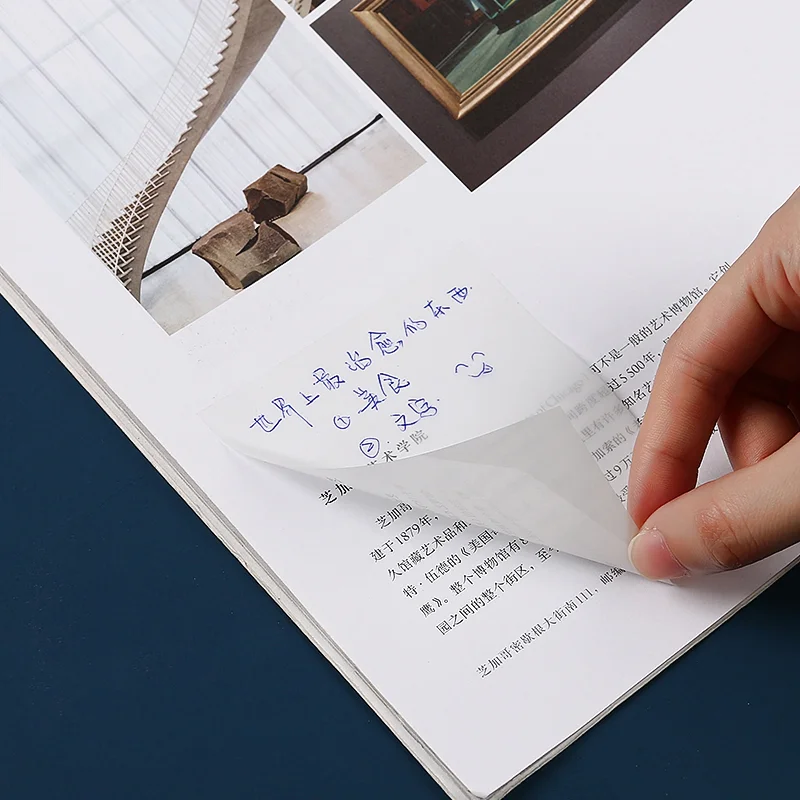 世界上最治愈的东西
① 美食
② 文字
术学院
芝加
of Chicago
可不是一般的艺术博物馆。它创
过5 500年，
知名艺
里有许
加索的《
过9万
芝加哥
建于1879年，
久馆藏艺术品和
特·伍德的《美国
鹰》。整个博物馆有
园之间的整个街区，至
芝加哥密歇根大街南111，邮编